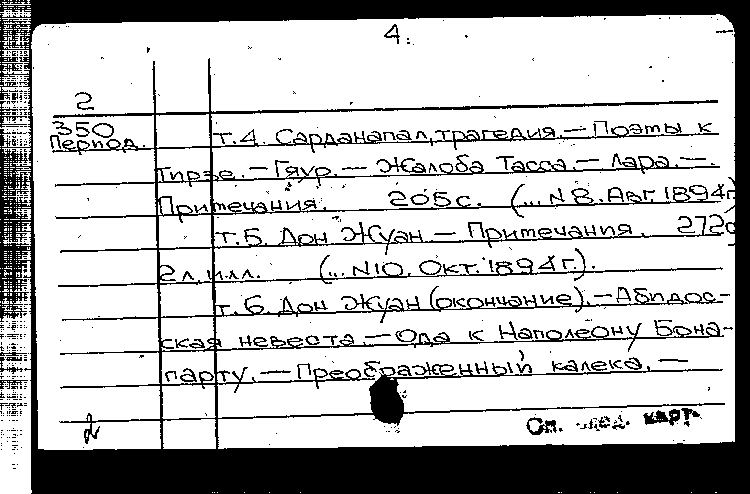 4.
2
350
Период.
т.4. Сарданапал, трагедия. — Поэты к
Тирзе. — Гяур. — Жалоба Тасса. — Лара. —
Примечания. 205 с. (... N 8. Авг. 1894г.)
т.5. Дон Жуан — Примечания. 272с
2 л. илл. (... N 10. Окт. 1894 г.).
т.6. Дон Жуан (окончание). — Абидос-
ская невеста. — Ода к Наполеону Бона-
парту. — Преображенный калека. —
См. след. карт.